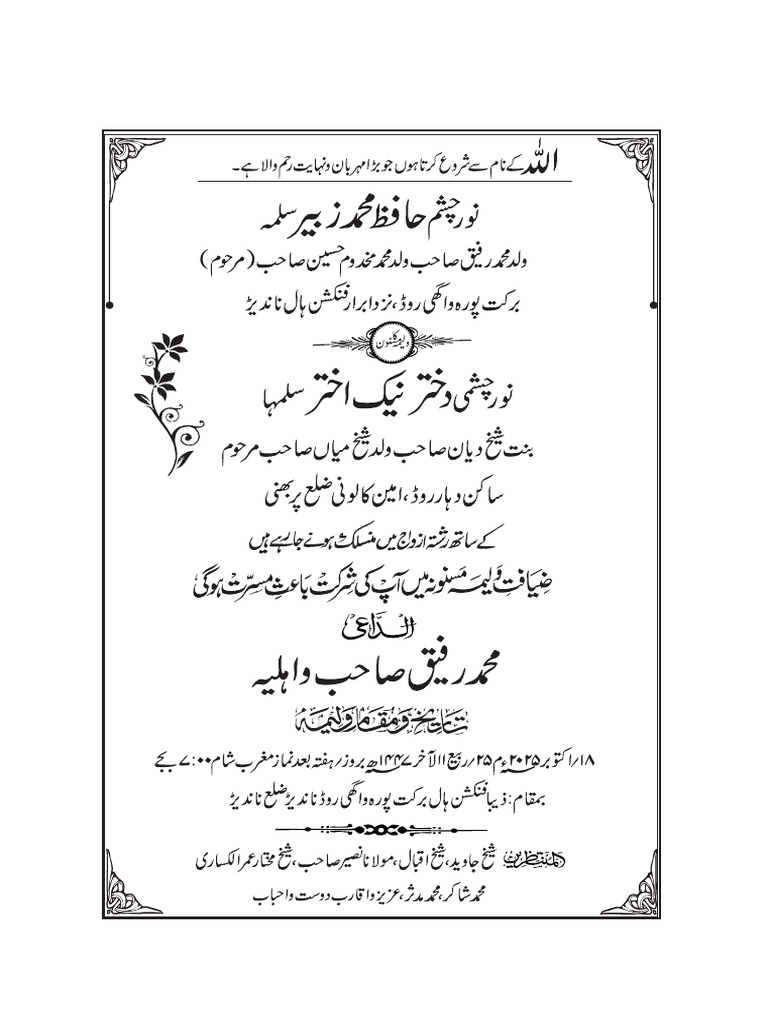 اللہ کے نام سے شروع کرتا ہوں جو بڑا مہربان و نہایت رحم والا ہے۔
نور چشم حافظ محمد زبیر سلمہ
ولد محمد رفیق صاحب ولد محمد مخدوم حسین صاحب (مرحوم)
برکت پورہ واگھی روڈ، نزد ابرار فنکشن ہال ناندیڑ
ولیمہ مسنون
نور چشمی دختر نیک اختر سلمہا
بنت شیخ دیان صاحب ولد شیخ میاں صاحب مرحوم
ساکن دہار روڈ، امین کالونی ضلع پربھنی
کے ساتھ رشتہ ازواج میں منسلک ہونے جا رہے ہیں
ضِیافتِ وَلیمہ مَسنونہ میں آپ کی شِرکت بَاعثِ مسرّت ہوگی
الدَّاعی
محمد رفیق صاحب و اہلیہ
تاریخ و مقام ولیمہ
۱۸/اکتوبر ۲۰۲۵ء م ۲۵/ربیع الآخر ۱۴۴۷ھ بروز/ہفتہ بعد نماز مغرب شام ۷:۰۰ بجے
بمقام: ذیبا فنکشن ہال برکت پورہ واگھی روڈ ناندیڑ ضلع ناندیڑ
المنتظرین شیخ جاوید، شیخ اقبال، مولانا نصیر صاحب، شیخ مختار عمر الکساری
محمد شاکر، محمد مدثر، عزیز و اقارب دوست و احباب